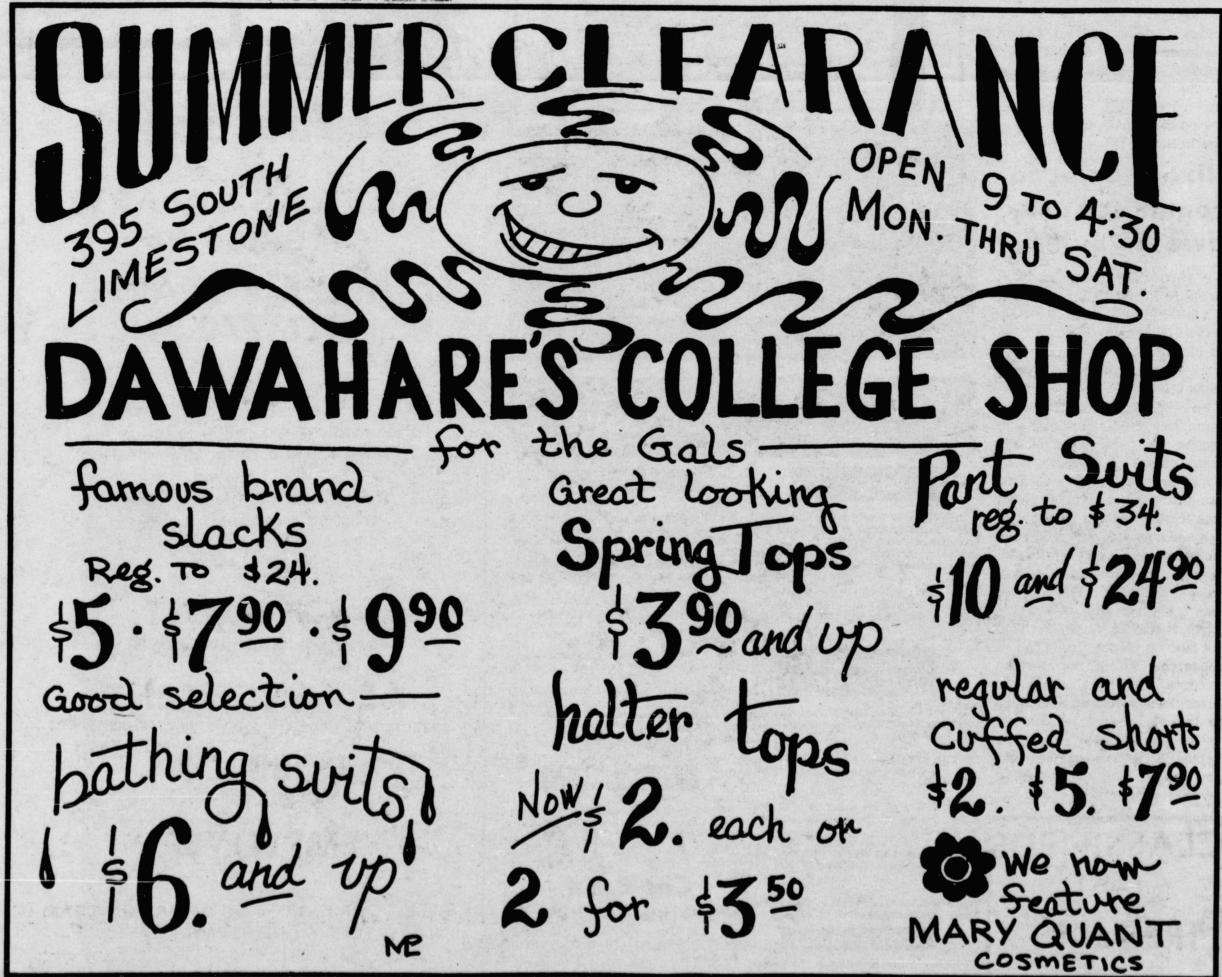 SUMMER CLEARANCE
395 SOUTH
LIMESTONE
OPEN 9 TO 4:30
MON. THRU SAT.
DAWAHARE'S COLLEGE SHOP
for the Gals
famous brand
slacks
Reg. TO $24.
$5 · $7 90 · $9 90
Good selection
bathing suits
$6. and up
Great looking
Spring Tops
$3 90 and up
halter tops
NOW $2. each or
2 for $3 50
Pant Suits
reg. to $34.
$10 and $24 90
regular and
cuffed shorts
$2. $5. $7 90
We now
feature
MARY QUANT
COSMETICS